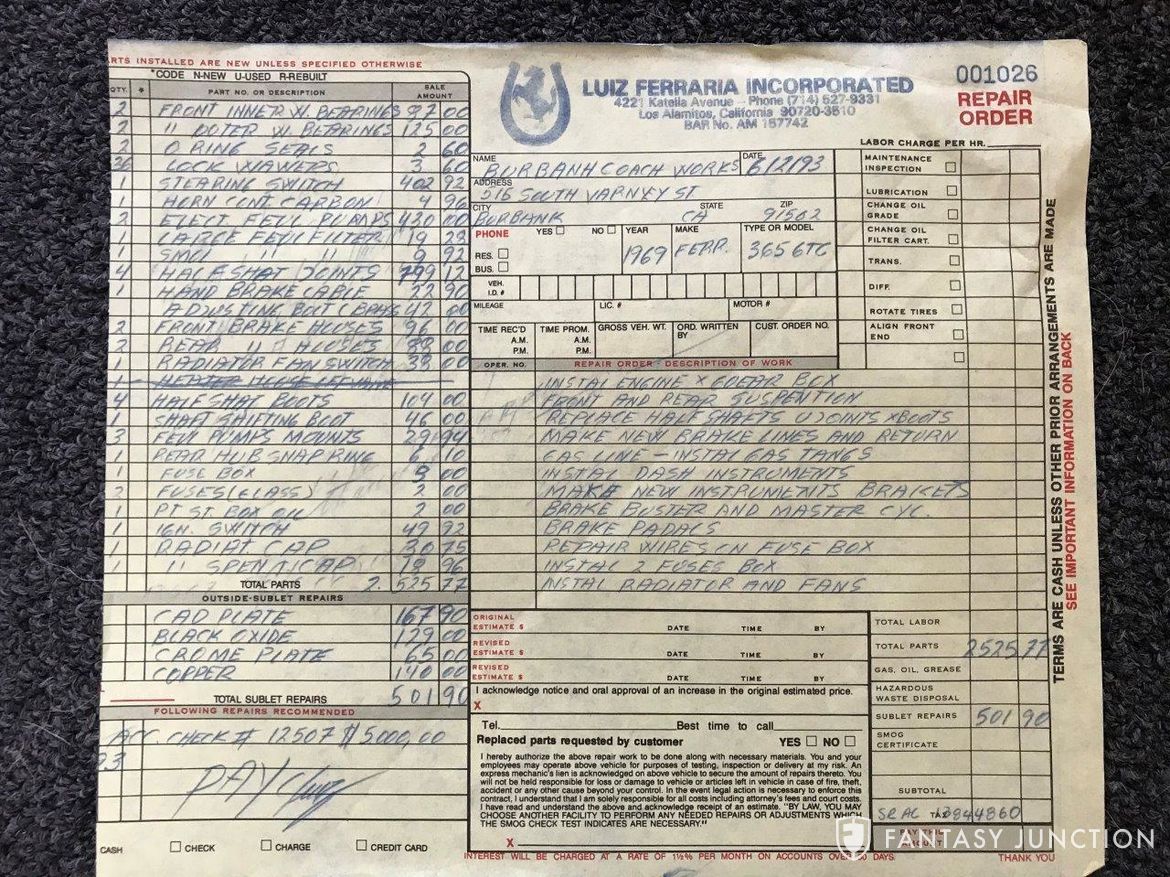 RTS INSTALLED ARE NEW UNLESS SPECIFIED OTHERWISE
*CODE N-NEW U-USED R-REBUILT
QTY. * PART NO. OR DESCRIPTION SALE AMOUNT
2 FRONT INNER W BEARINGS 92 00
2 " OOTER W. BEARINGS 125 00
2 O RING SEALS 2 60
36 LOCK WAWERS 3 60
1 STEARING SWITCH 402 92
1 HORN CONT. CARBON 4 96
2 ELECT FEUL PUMPS 420 00
1 LARGE FEUL FILTER 19 22
1 SMOL " " 9 92
4 HALFSHAT JOINTS 799 12
1 HAND BRAKE CABLE 22 90
ADJUSTING BOLT 42 00
2 FRONT BRAKE HOUSES 96 00
2 REAR " HOUSES 88 00
1 RADIATOR FAN SWITCH 38 00
1 HEATER HOUSE
4 HALFSHAT BOOTS 104 00
1 SHAFT SHIFTING BOOT 46 00
3 FEUL PUMPS MOUNTS 29 94
1 REAR HUB SNAP RING 6 10
1 FUSE BOX 9 00
2 FUSES (GLASS) 2 00
1 PT ST. BOX OIL 2 00
1 IGN. SWITCH 49 92
1 RADIAT CAP 30 75
1 " CAP 19 96
TOTAL PARTS 2. 525 77
OUTSIDE-SUBLET REPAIRS
CAD PLATE 167 90
BLACK OXIDE 129 00
CROME PLATE 65 00
COPPER 140 00
TOTAL SUBLET REPAIRS 501 90
FOLLOWING REPAIRS RECOMMENDED
ACC. CHECK # 12507 $5.000,00
93
PAY
CASH CHECK CHARGE CREDIT CARD
LUIZ FERRARIA INCORPORATED
4221 Katella Avenue – Phone (714) 527-9331
Los Alamitos, California 90720-3510
BAR No. AM 157742
001026
REPAIR
ORDER
LABOR CHARGE PER HR.
NAME BURBANH COACH WORKS DATE 6/2/93
ADDRESS 516 SOUTH VARNEY ST
CITY BURBANK STATE CA ZIP 91502
PHONE YES NO YEAR MAKE TYPE OR MODEL
RES. 1969 FERR. 365 GTC
BUS.
VEH. I.D. #
MILEAGE LIC. # MOTOR #
TIME REC'D A.M. P.M. TIME PROM. A.M. P.M. GROSS VEH. WT. ORD. WRITTEN BY CUST. ORDER NO.
MAINTENANCE INSPECTION
LUBRICATION
CHANGE OIL GRADE
CHANGE OIL FILTER CART.
TRANS.
DIFF.
ROTATE TIRES
ALIGN FRONT END
OPER. NO. REPAIR ORDER - DESCRIPTION OF WORK
INSTAL ENGINE x GDEAR BOX
FRONT AND REAR SUSPENTION
REPLACE HALFSHAFTS JOINTS x BOOTS
MAKE NEW BRAKE LINES AND RETURN
GAS LINE – INSTAL GAS TANGS
INSTAL DASH INSTRUMENTS
MAKE NEW INSTRUMENTS BRAKETS
BRAKE BUSTER AND MASTER CYC.
BRAKE PADALS
REPAIR WIRES ON FUSE BOX
INSTAL 2 FUSES BOX
INSTAL RADIATOR AND FANS
ORIGINAL ESTIMATE $ DATE TIME BY
REVISED ESTIMATE $ DATE TIME BY
REVISED ESTIMATE $ DATE TIME BY
I acknowledge notice and oral approval of an increase in the original estimated price.
X
Tel. Best time to call
Replaced parts requested by customer YES NO
I hereby authorize the above repair work to be done along with necessary materials. You and your
employees may operate above vehicle for purposes of testing, inspection or delivery at my risk. An
express mechanic's lien is acknowledged on above vehicle to secure the amount of repairs thereto. You
will not be held responsible for loss or damage to vehicle or articles left in vehicle in case of fire, theft,
accident or any other cause beyond your control. In the event legal action is necessary to enforce this
contract, I understand that I am solely responsible for all costs including attorney's fees and court costs.
I have read and understand the above and acknowledge receipt of an estimate. "BY LAW, YOU MAY
CHOOSE ANOTHER FACILITY TO PERFORM ANY NEEDED REPAIRS OR ADJUSTMENTS WHICH
THE SMOG CHECK TEST INDICATES ARE NECESSARY."
X
TOTAL LABOR
TOTAL PARTS 2525 77
GAS, OIL, GREASE
HAZARDOUS WASTE DISPOSAL
SUBLET REPAIRS 501 90
SMOG CERTIFICATE
SUBTOTAL
TAX
AMOUNT
INTEREST WILL BE CHARGED AT A RATE OF 1½% PER MONTH ON ACCOUNTS OVER 30 DAYS
THANK YOU
TERMS ARE CASH UNLESS OTHER PRIOR ARRANGEMENTS ARE MADE
SEE IMPORTANT INFORMATION ON BACK
FANTASY JUNCTION